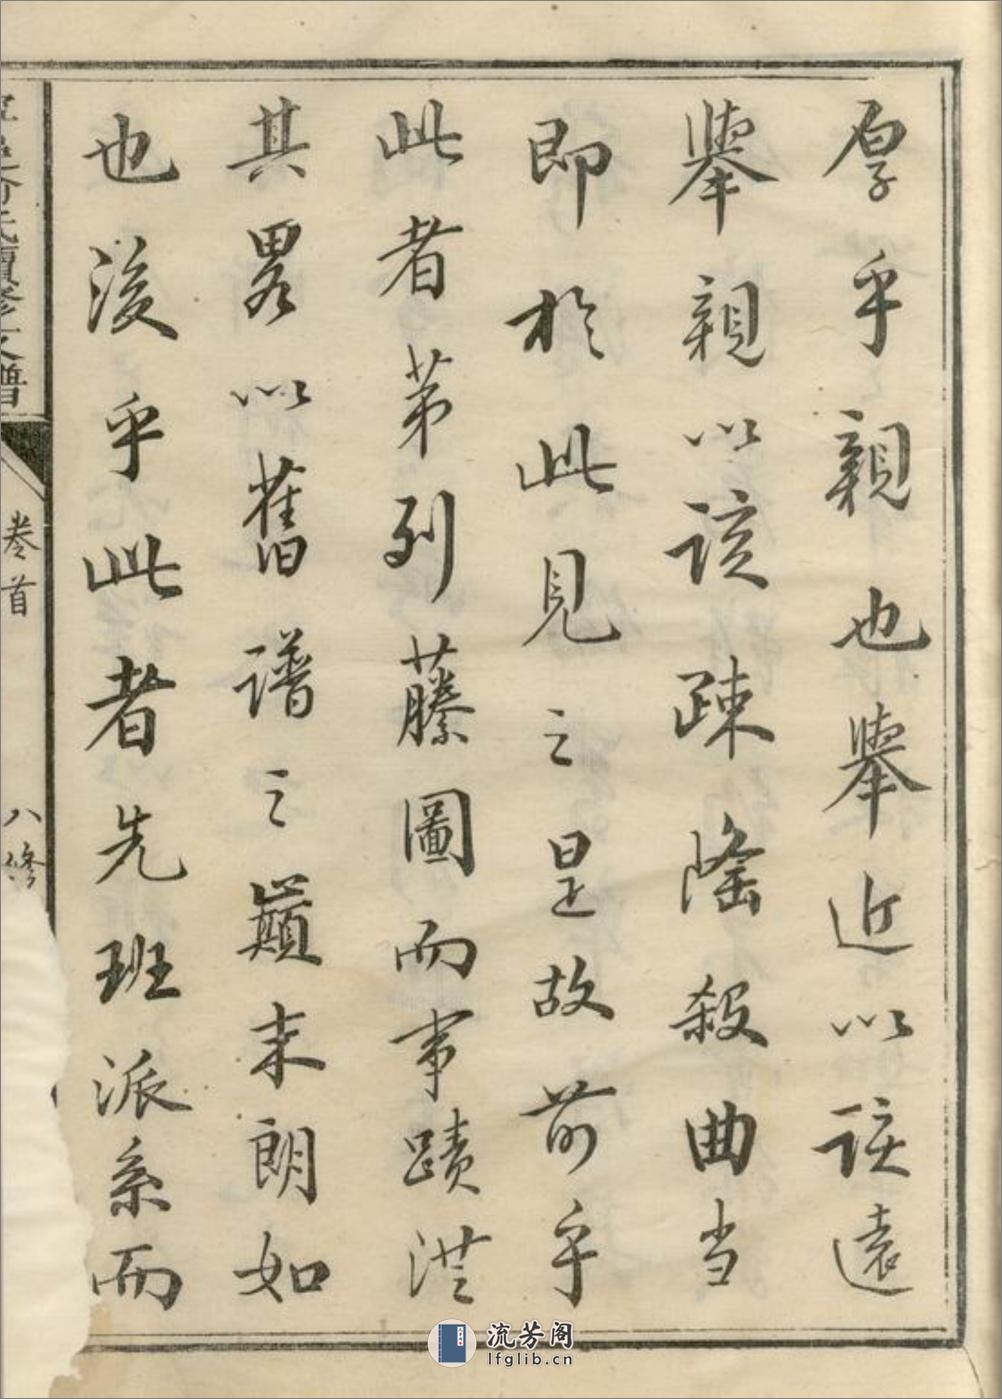 厚乎親也舉近以該遠
舉親以該疎隆殺曲当
即於此見之是故前乎
此者苐列藤圖而事蹟
其畧以舊譜之巔末朗如
也後乎此者先班派系而
氏續修支譜
卷首
八修
流芳阁
lfglib.cn